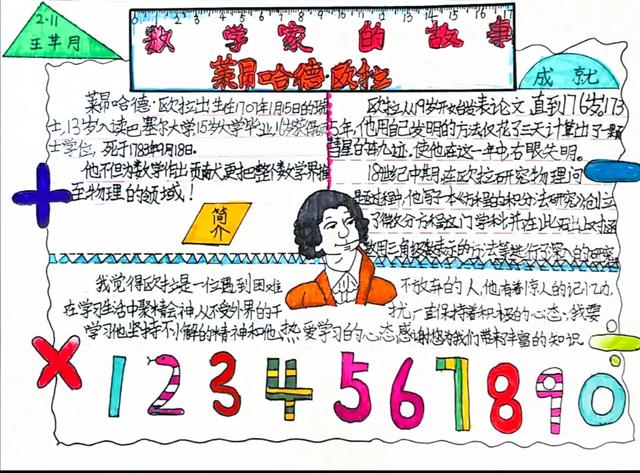 2·11
王芊月
0 1 2 3 4 5 6 7 8 9 10 11 12 13 14 15 16 17
数学家的故事
莱昂哈德·欧拉
成就
莱昂哈德·欧拉出生在1707年1月15日的瑞
士,13岁入读巴塞尔大学15岁大学毕业,16岁获得硕
士学位,死于178年9月18日。
他不但为数学作出贡献,更把整个数学界推
至物理的领域!
简
介
欧拉从19岁开始发表论文,直到176岁,173
5年,他用自己发明的方法仅花了三天计算出了一颗
彗星的轨迹,使他在这一年中右眼失明。
18世纪中期,在欧拉研究物理问
题过程中,他写了
了微分方程这门学科,并在此
数用三角级数表示的方法等进行了深入的研究
我觉得欧拉是一位遇到困难
不放弃的人,他有着惊人的记忆力,
在学习生活中聚精会神,从不受外界的干
扰,一直保持着积极的心态。我要
学习他坚持不懈的精神和他热爱学习的心态感谢您为我们带来丰富的知识。
1 2 3 4 5 6 7 8 9 0